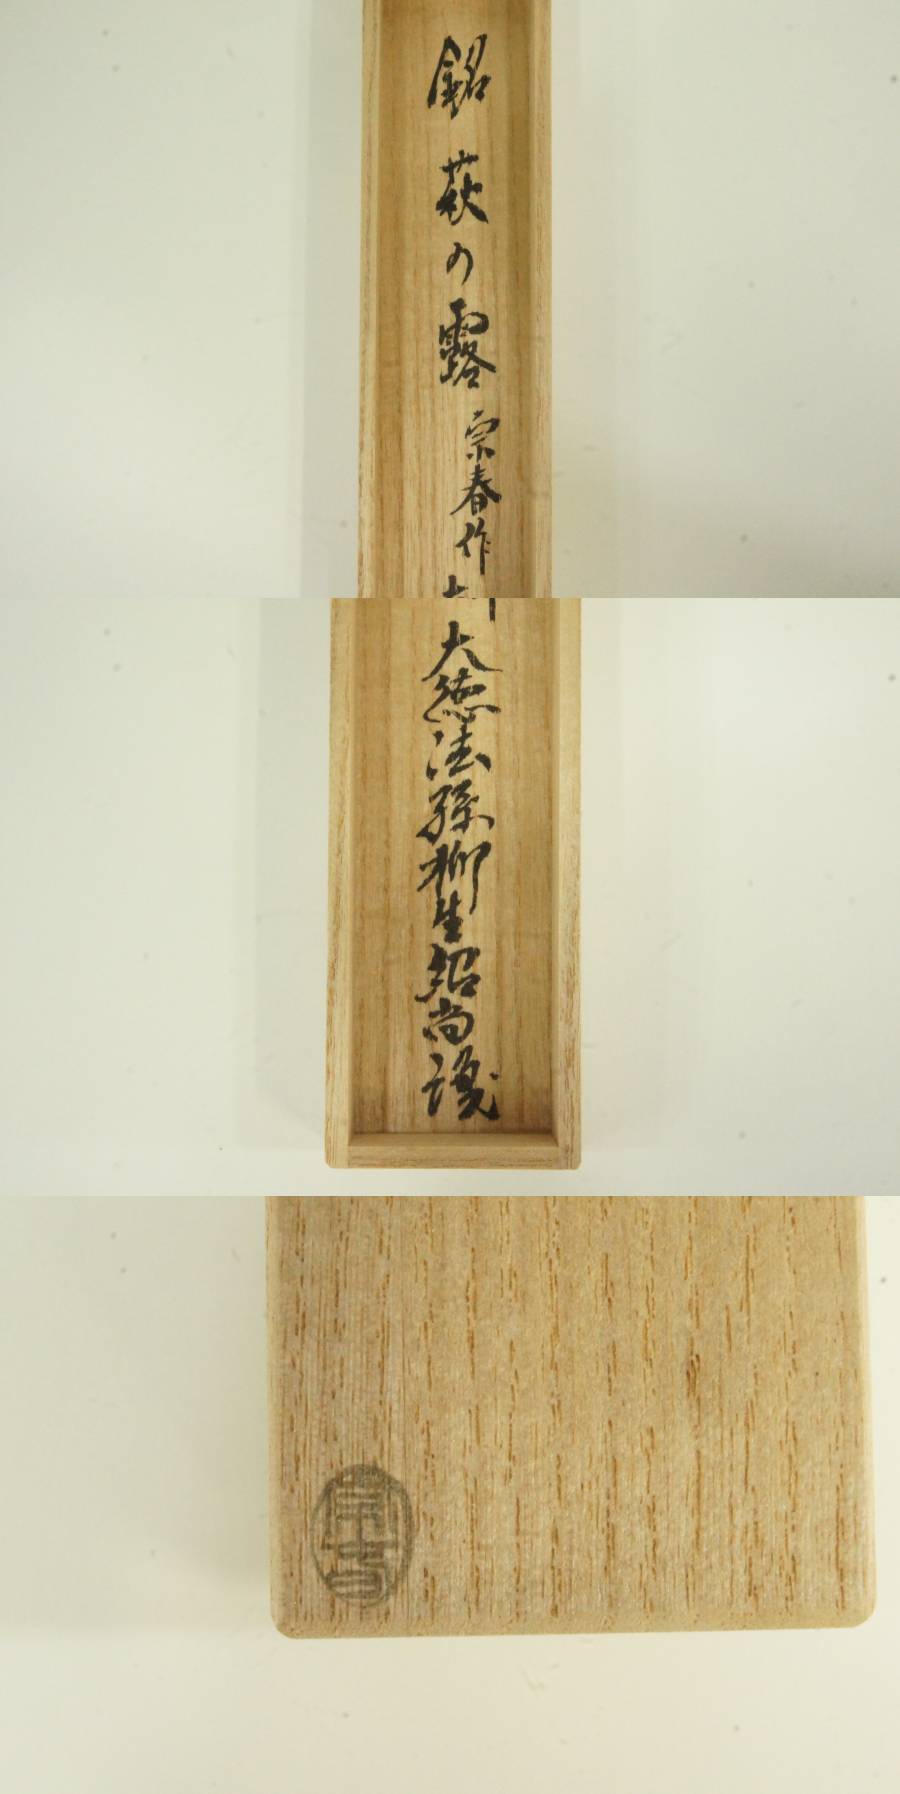 銘 萩の露 宗春作
大徳法孫柳生紹尚識